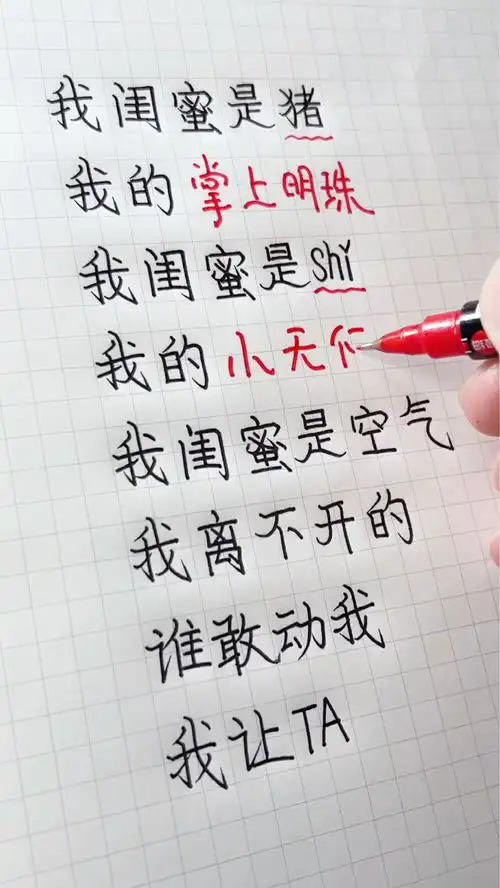 我闺蜜是猪
我的掌上明珠
我闺蜜是shi
我的小天
我闺蜜是空气
我离不开的
谁敢动我
我让TA